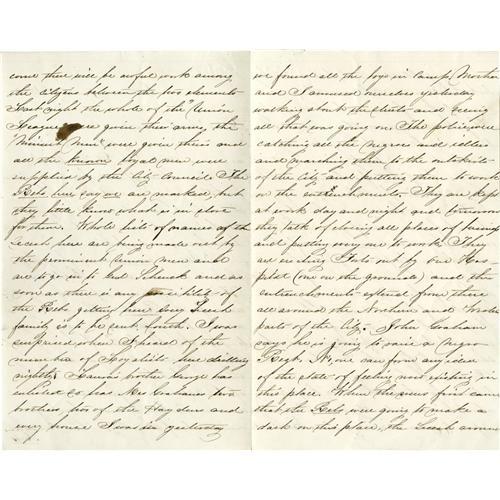 come there will be awful work among
the citizens between the two elements
Last night the whole of the "Union
League" were given their arms, the
"Minute Men" were given theirs and
all the known loyal men were
supplied by the City Council. The
Rebs here say we are marked, but
they little know what is in store
for them. Whole lists of names of the
Secesh here are being made out by
the prominent Union men and
are to go in to Genl Schenck and as
soon as there is any possibility of
the Rebs getting here every Secesh
family is to be sent South. I was
surprised when I heard of the
number of Loyalists here drilling
nightly. brother George has
enlisted so has Mr Grahames two
brothers two of the Haydens and
every house I was in yesterday
we found all the boys in camp. Mother
and I amused ourselves yesterday
walking about the streets and seeing
all that was going on. The police were
catching all the negroes and idlers
and marching them to the outskirts
of the City and putting them to work
on the entrenchments. They are kept
at work day and night and tomorrow
they talk of closing all places of business
and putting every one to work. They
are erecting Forts out by our Hos-
pital (one on the grounds) and the
entrenchments extend from there
all around the Northern and Western
parts of the City. John Graham
says he is going to raise a Negro
Regt. No one can form any idea
of the state of feeling now existing in
this place. When the news first came
that the Rebs were going to make a
dash on this place, the Secesh